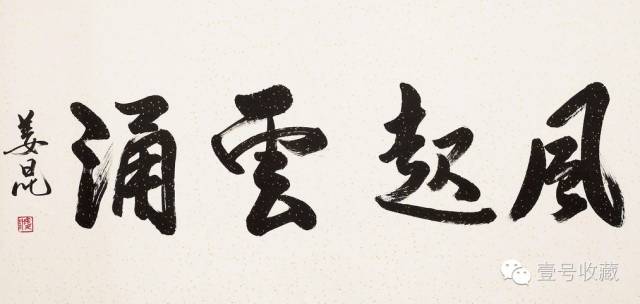 風起雲涌
姜昆
壹号收藏